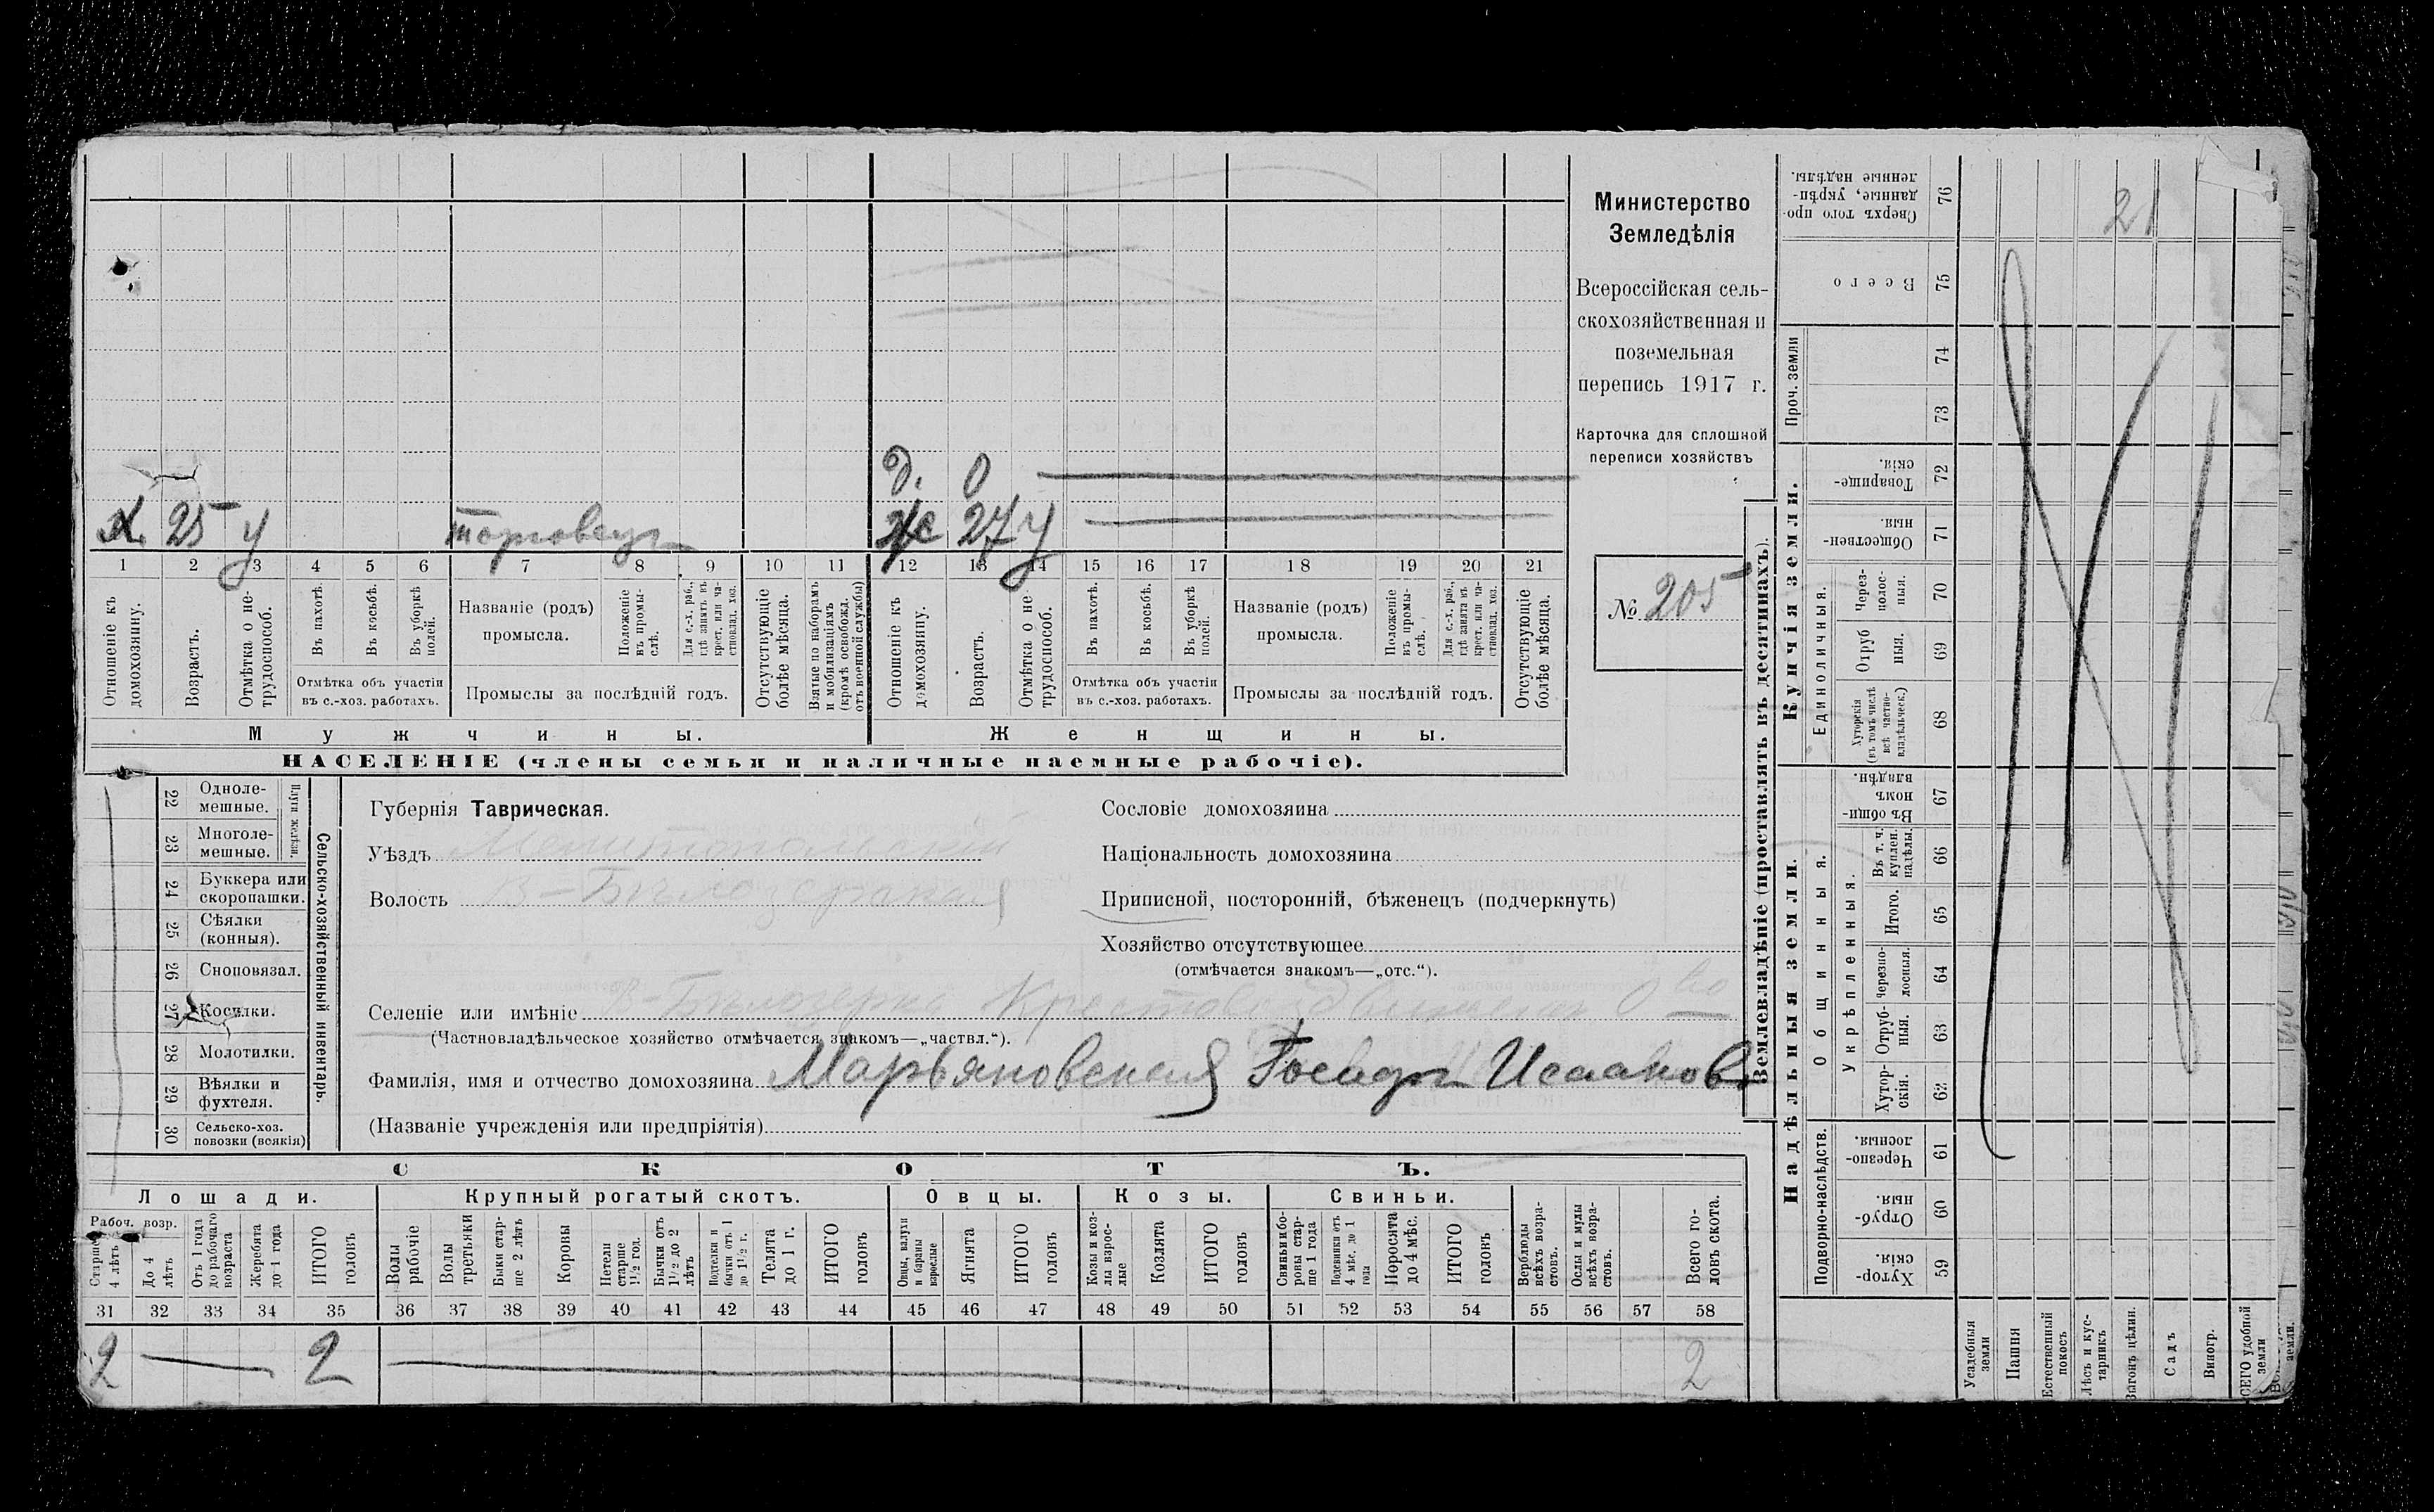 х. 25 у торговецъ
д. 0
ж 27 у
1 2 3 4 5 6 7 8 9 10 11 12 13 14 15 16 17 18 19 20 21
Отношеніе къ домохозяину.
Возрастъ.
Отмѣтка о нетрудоспособ.
Въ пахотѣ.
Въ косьбѣ.
Въ уборкѣ полей.
Отмѣтка объ участіи
въ с.-хоз. работахъ.
Названіе (родъ)
промысла.
Положеніе въ промыслѣ.
Для с.-х. раб., гдѣ занятъ въ крест. или частновлад. хоз.
Промыслы за послѣдній годъ.
Отсутствующіе болѣе мѣсяца.
Взятые по наборамъ и мобилизаціямъ (кромѣ освобожд. отъ военной службы)
Отношеніе къ домохозяину.
Возрастъ.
Отмѣтка о нетрудоспособ.
Въ пахотѣ.
Въ косьбѣ.
Въ уборкѣ полей.
Отмѣтка объ участіи
въ с.-хоз. работахъ.
Названіе (родъ)
промысла.
Положеніе въ промыслѣ.
Для с.-х. раб., гдѣ занята въ крест. или частновлад. хоз.
Промыслы за послѣдній годъ.
Отсутствующіе болѣе мѣсяца.
Мужчины.
Женщины.
НАСЕЛЕНІЕ (члены семьи и наличные наемные рабочіе).
Министерство
Земледѣлія
Всероссійская сель-
скохозяйственная и
поземельная
перепись 1917 г.
Карточка для сплошной
переписи хозяйствъ
№ 205
22 Одноле-
мешные.
23 Многоле-
мешные.
Плуги желѣзн.
24 Буккера или
скоропашки.
25 Сѣялки
(конныя).
26 Сноповязал.
27 Косилки.
28 Молотилки.
29 Вѣялки и
фухтеля.
30 Сельско-хоз.
повозки (всякія)
Сельско-хозяйственный инвентарь.
Губернія Таврическая.
Уѣздъ Мелитопольский
Волость В-Бѣлозерская
Сословіе домохозяина
Національность домохозяина
Приписной, посторонній, бѣженецъ (подчеркнуть)
Хозяйство отсутствующее
(отмѣчается знакомъ—„отс.“).
Селеніе или имѣніе В-Бѣлозерка Крестовоздвижен О во
(Частновладѣльческое хозяйство отмѣчается знакомъ—„частвл.“).
Фамилія, имя и отчество домохозяина Марьяновский Іосифъ Исааков
(Названіе учрежденія или предпріятія)
СКОТЪ.
Лошади. Крупный рогатый скотъ. Овцы. Козы. Свиньи.
Рабоч. возр.
Старше 4 лѣтъ
До 4 лѣтъ
Отъ 1 года до рабочаго возраста
Жеребята до 1 года
ИТОГО головъ
Волы рабочіе
Волы третьяки
Быки старше 2 лѣтъ
Коровы
Нетели старше 1½ год.
Бычки отъ 1½ до 2 лѣтъ
Подтелки и бычки отъ 1 до 1½ г.
Телята до 1 г.
ИТОГО головъ
Овцы, валухи и бараны взрослые
Ягнята
ИТОГО головъ
Козы и козлы взрослые
Козлята
ИТОГО головъ
Свиньи и боровы старше 1 года
Подсвинки отъ 4 мѣс. до 1 года
Поросята до 4 мѣс.
ИТОГО головъ
Верблюды всѣхъ возрастовъ.
Ослы и мулы всѣхъ возрастовъ.
Всего головъ скота.
31 32 33 34 35 36 37 38 39 40 41 42 43 44 45 46 47 48 49 50 51 52 53 54 55 56 57 58
2 — 2 — 2
Землевладѣніе (проставлять въ десятинахъ).
Надѣльныя земли.
Купчія земли.
Проч. земли
Сверхъ того проданные, укрѣпленные надѣлы. 76
21
Всего 75
74
73
Товарищескія. 72
Общественныя. 71
Единоличныя.
Черезполосныя. 70
Отрубныя. 69
Хуторскія (въ томъ числѣ всѣ частновладѣльческ.) 68
Общинныя.
Въ общинномъ владѣн. 67
Укрѣпленныя.
Въ т. ч. куплен. надѣлы. 66
Итого. 65
Черезполосныя. 64
Отрубныя. 63
Хуторскія. 62
Подворно-наслѣдств.
Черезполосныя. 61
Отрубныя. 60
Хуторскія. 59
Усадебныя земли
Пашня
Естественный покосъ
Лѣсъ и кустарникъ
Выгонъ цѣлин.
Садъ
Виногр.
ВСЕГО удобной земли
земли.